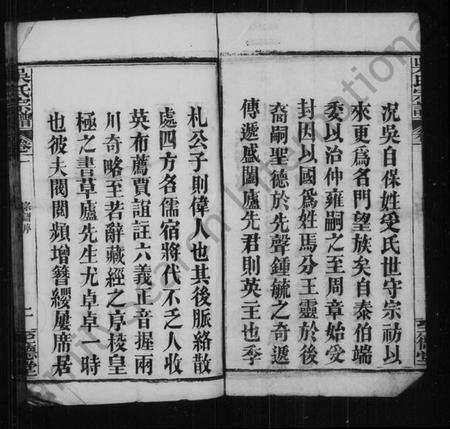 況吳自保姓受氏世守宗祊以
來更爲名門望族矣自泰伯端
委以治仲雍嗣之至周章始受
封因以國爲姓馬分王靈於後
裔嗣聖德於先聲鍾毓之奇遞
傳遞盛闔廬先君則英王也季
札公子則偉人也其後脈絡散
處四方名儒宿將代不乏人收
英布薦賈誼註六義正音握兩
川奇略至若辭藏經之序稜皇
極之書草廬先生尤卓卓一時
也彼夫閥閱頻增簪纓屢席居
吳氏宗譜
卷一